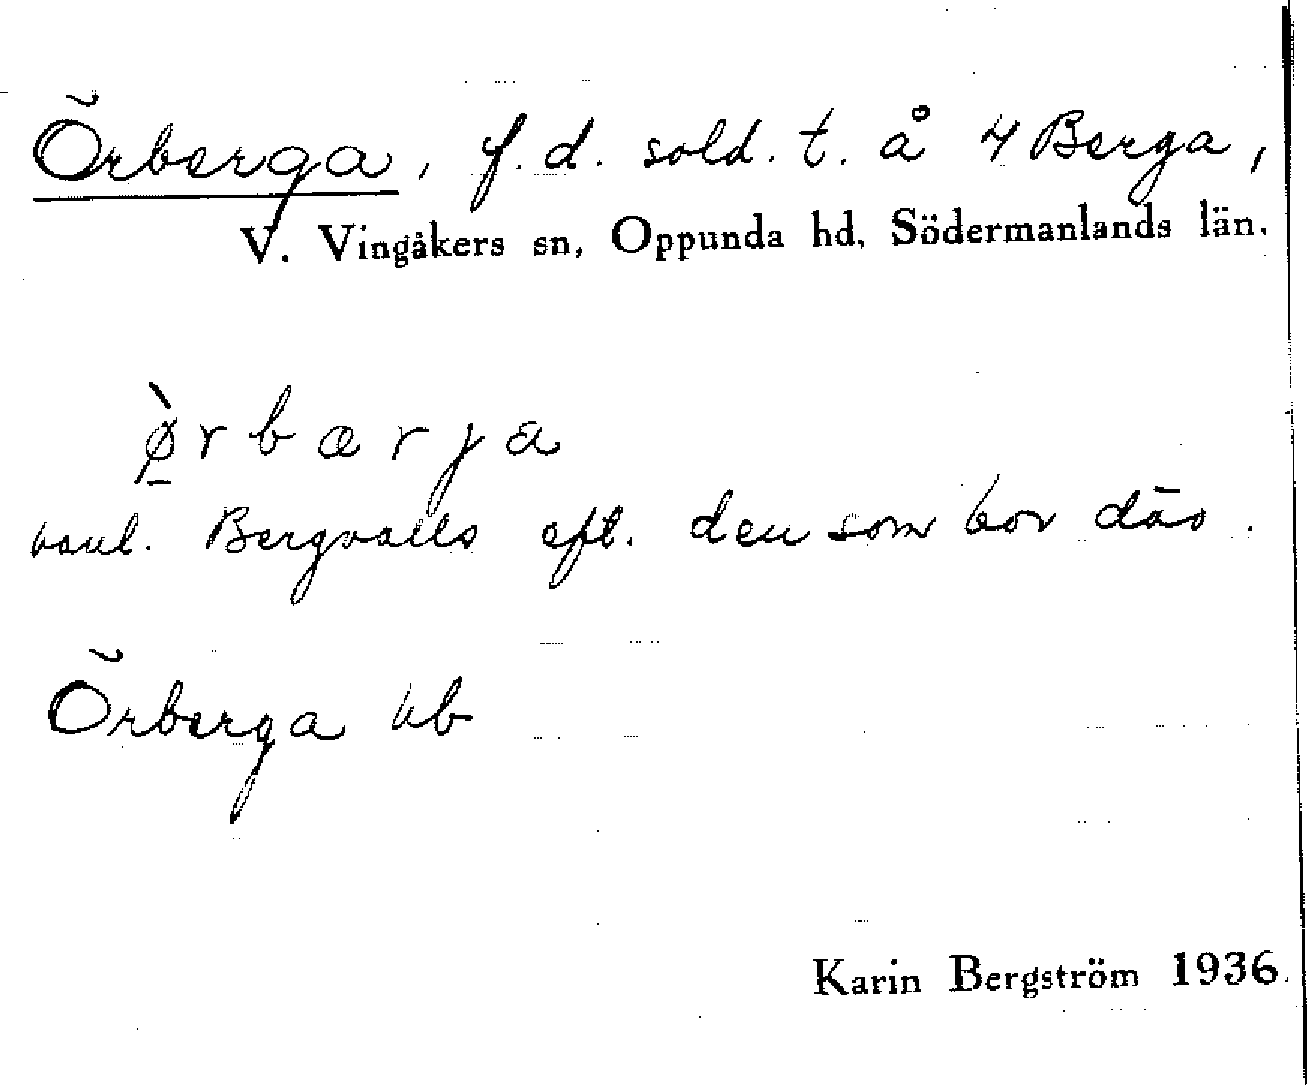 Örberga, f.d. sold. t. å 4 Berga,
V. Vingåkers sn, Oppunda hd, Södermanlands län.
ø̀rbærja
vanl. Bergvalls eft. den som bor där.
Örberga ub
Karin Bergström 1936.